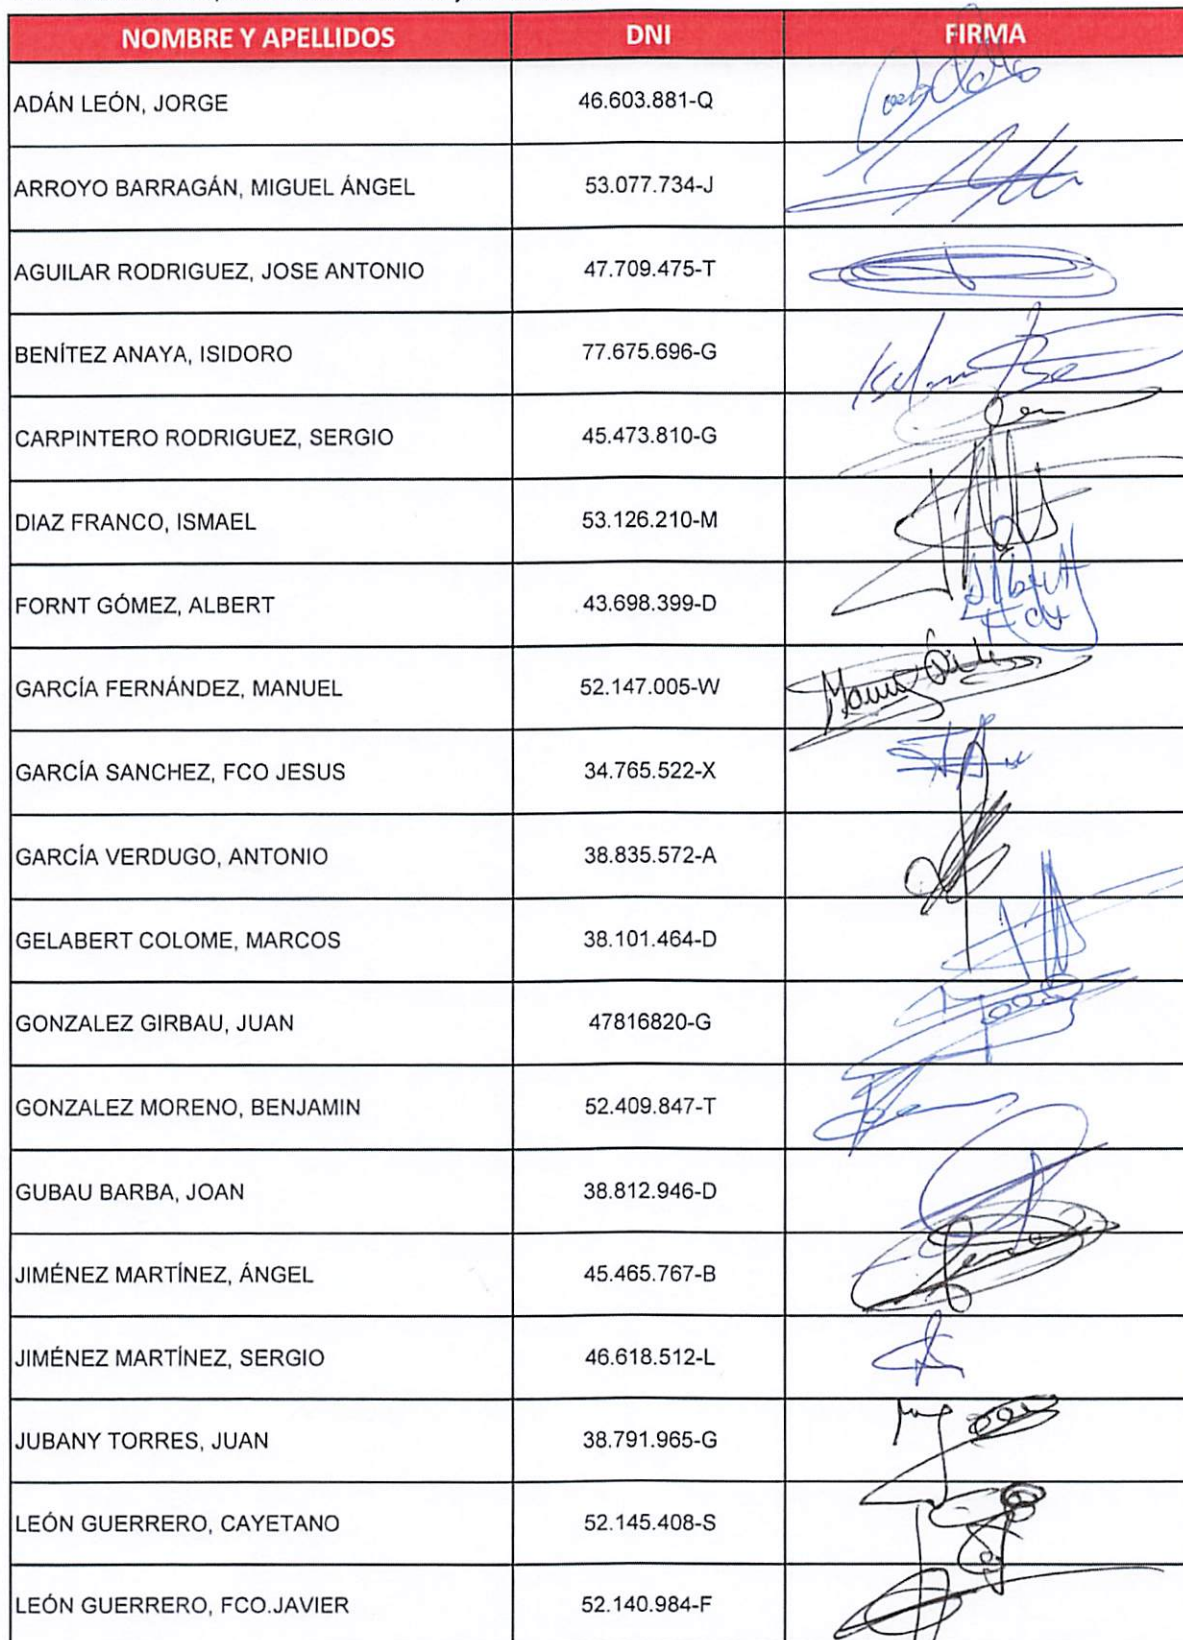 NOMBRE Y APELLIDOS DNI FIRMA
ADÁN LEÓN, JORGE 46.603.881-Q
ARROYO BARRAGÁN, MIGUEL ÁNGEL 53.077.734-J
AGUILAR RODRIGUEZ, JOSE ANTONIO 47.709.475-T
BENÍTEZ ANAYA, ISIDORO 77.675.696-G
CARPINTERO RODRIGUEZ, SERGIO 45.473.810-G
DIAZ FRANCO, ISMAEL 53.126.210-M
FORNT GÓMEZ, ALBERT 43.698.399-D
GARCÍA FERNÁNDEZ, MANUEL 52.147.005-W
GARCÍA SANCHEZ, FCO JESUS 34.765.522-X
GARCÍA VERDUGO, ANTONIO 38.835.572-A
GELABERT COLOME, MARCOS 38.101.464-D
GONZALEZ GIRBAU, JUAN 47816820-G
GONZALEZ MORENO, BENJAMIN 52.409.847-T
GUBAU BARBA, JOAN 38.812.946-D
JIMÉNEZ MARTÍNEZ, ÁNGEL 45.465.767-B
JIMÉNEZ MARTÍNEZ, SERGIO 46.618.512-L
JUBANY TORRES, JUAN 38.791.965-G
LEÓN GUERRERO, CAYETANO 52.145.408-S
LEÓN GUERRERO, FCO.JAVIER 52.140.984-F